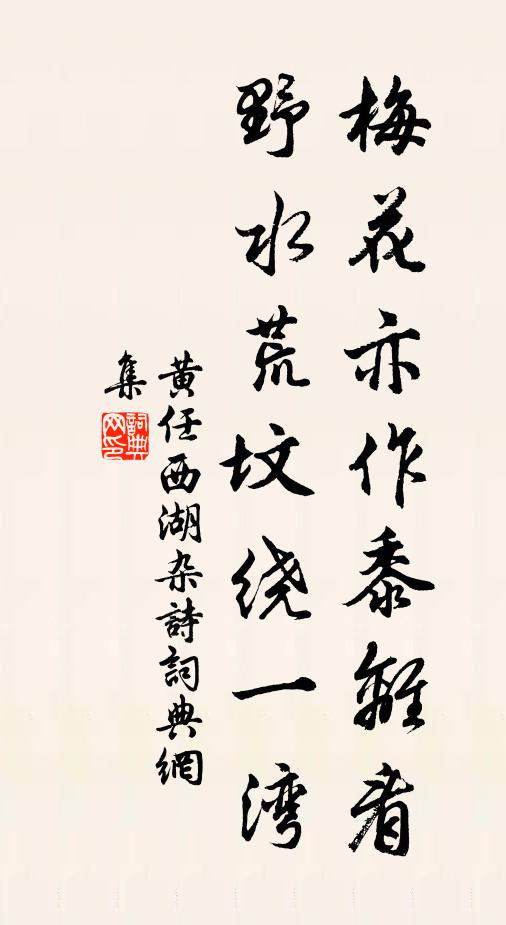 梅花亦作黍離看
野水荒坟绕一湾
黄任西湖杂詩詞典網
集
詞典网印